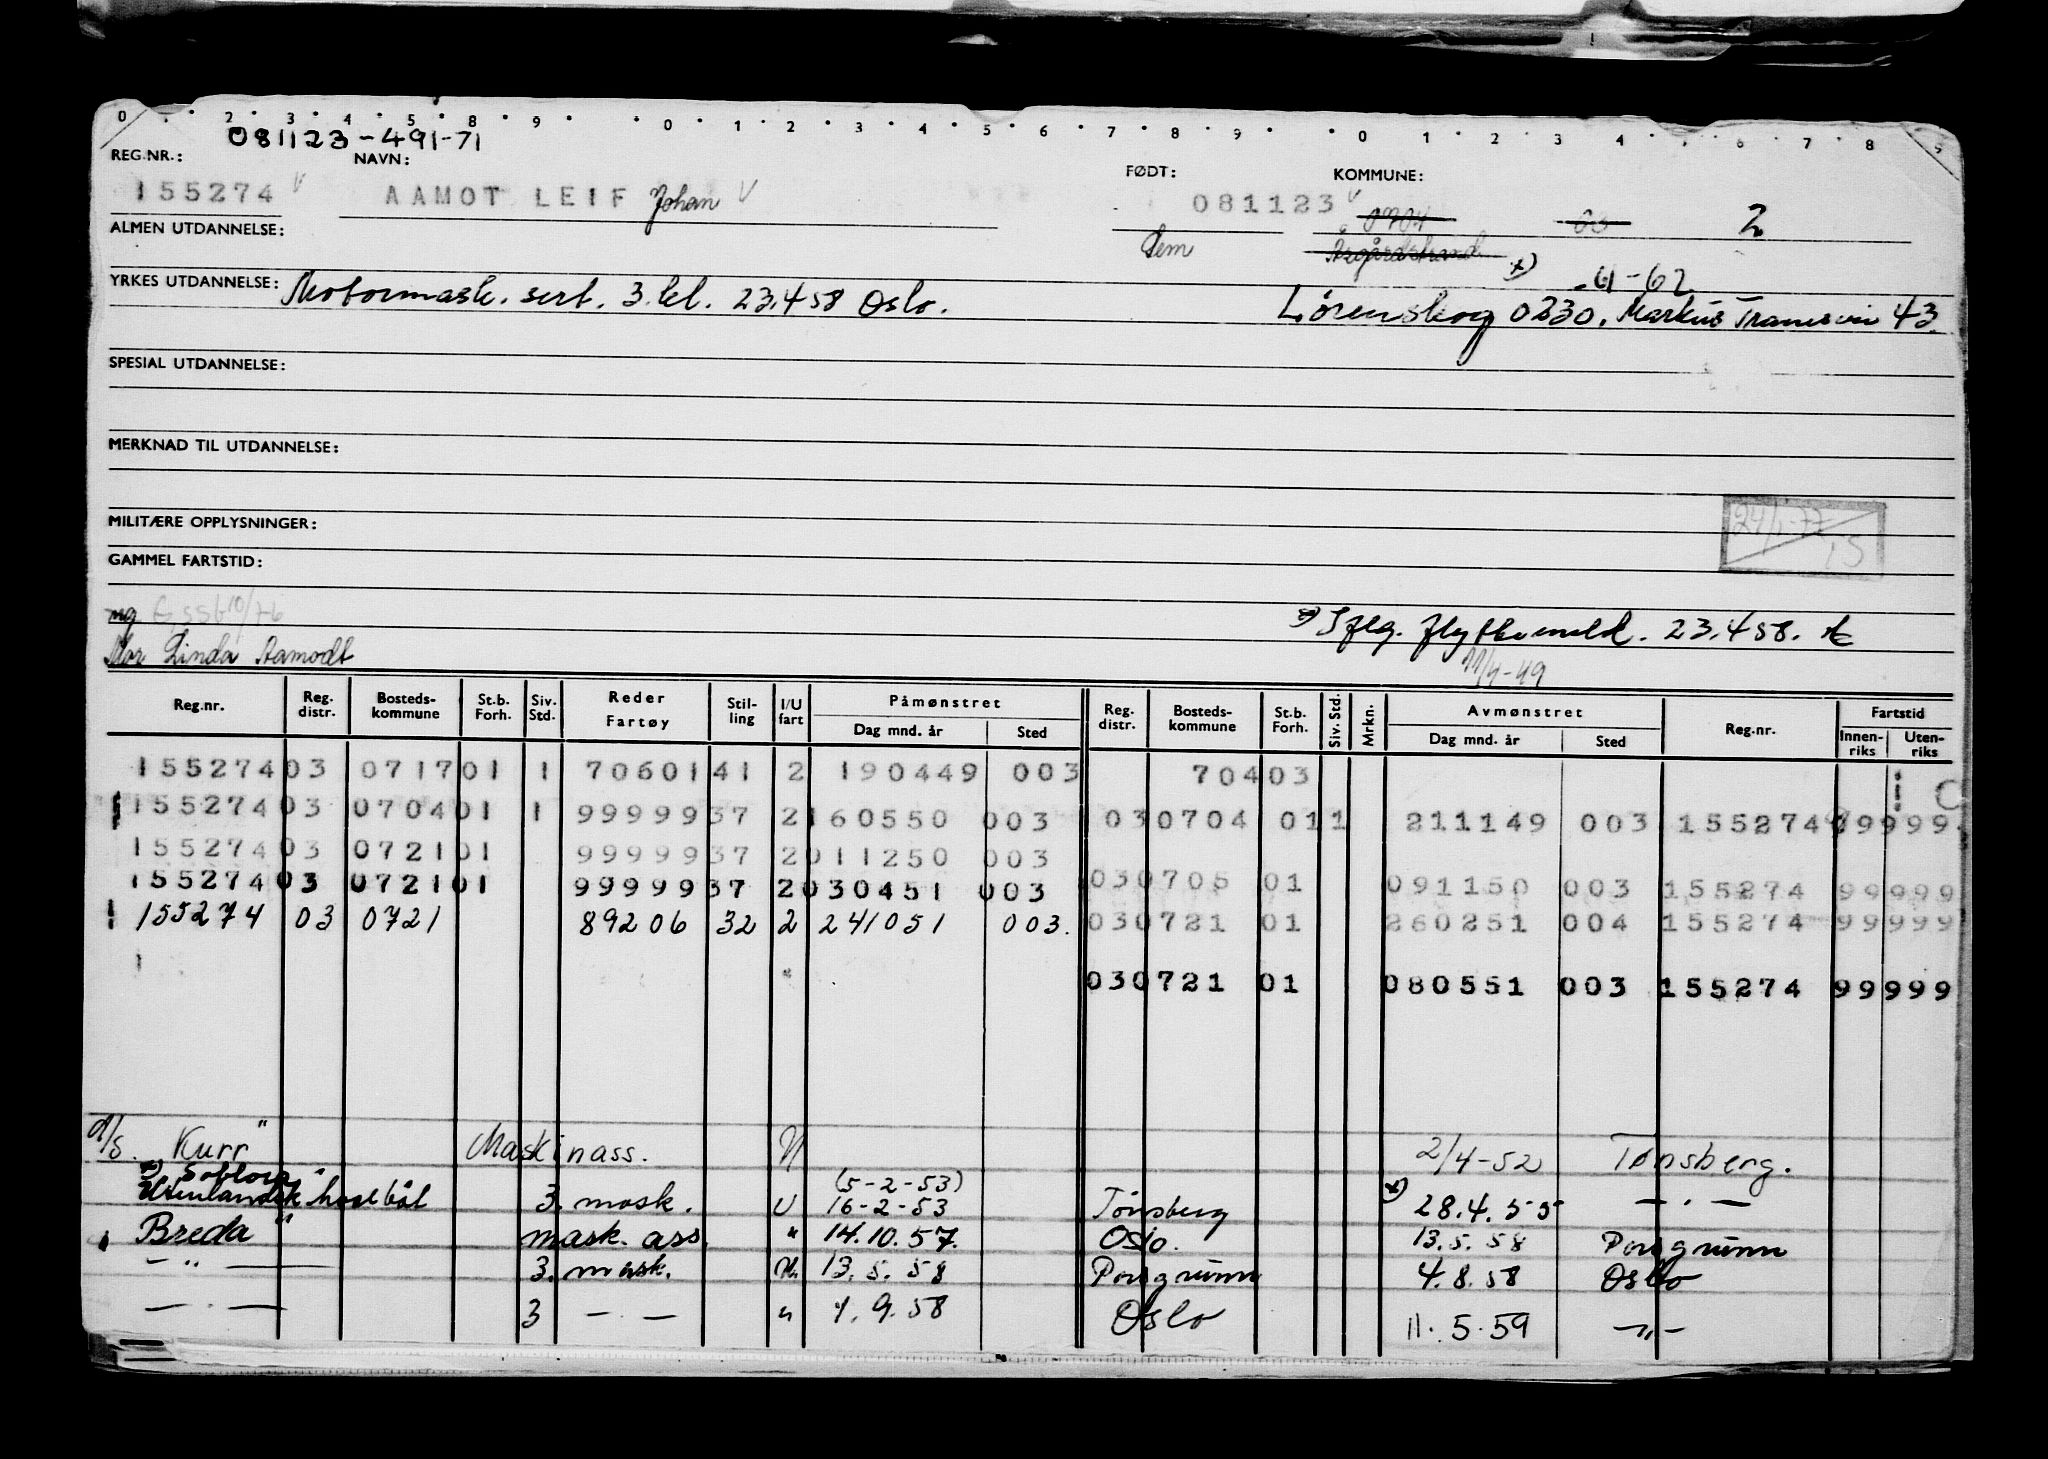 0 . . 2 . 3 . 4 . 5 . 8 . 9 . . 0 . 1 . 2 . 3 . 4 . 5 . 6 . 7 . 8 . 9 . . 0 . 1 . 2 3 . 4 . . 6 . 7 . 8 9
081123-491-71
REG.NR.: NAVN: FØDT: KOMMUNE:
155274 AAMOT LEIF Johan 081123 0704 2
ALMEN UTDANNELSE: Sem Åsgårdstrand x)
-61-62
YRKES UTDANNELSE: Motormask. sert. 3. kl. 23.4 58 Oslo. Lørenskog 0230, Markus Tranesvei 43
SPESIAL UTDANNELSE:
MERKNAD TIL UTDANNELSE:
MILITÆRE OPPLYSNINGER: 24/1-77
GAMMEL FARTSTID:
ug
x) Iflg. flyttemeld. 23.4 58.
Mor Linda Aamodt
11/4-49
Reg.nr. Reg. distr. Bosteds-kommune St.b. Forh. Siv. Std. Reder Fartøy Stil-ling I/U fart Påmønstret Dag mnd. år Sted Reg. distr. Bosteds-kommune St.b. Forh. Siv. Std. Mrkn. Avmønstret Dag mnd. år Sted Reg.nr. Fartstid Innen-riks Uten-riks
155274 03 0717 01 1 70601 41 2 190449 003 70403
155274 03 0704 01 1 99999 37 2 160550 003 03 0704 01 1 211149 003 155274 99999
155274 03 0721 01 99999 37 2 011250 003
155274 03 0721 01 99999 37 2 030451 003 03 0705 01 091150 003 155274 99999
155274 03 0721 89206 32 2 241051 003. 03 0721 01 260251 004 155274 99999
03 0721 01 080551 003 155274 99999
d/s. "Kurr" Maskinass. U 2/4-52 Tønsberg.
(5-2-53)
Utenlandsk hvalbåt 3. mask. U 16-2-53 Tønsberg x) 28.4.55 — . —
Breda" mask. ass. " 14.10.57. Oslo. 13.5.58 Porsgrunn
— " — 3. mask. 13.5.58 Porsgrunn 4.8.58 Oslo
— . — 3 — . — " 1.9.58 Oslo 11.5.59 — " —